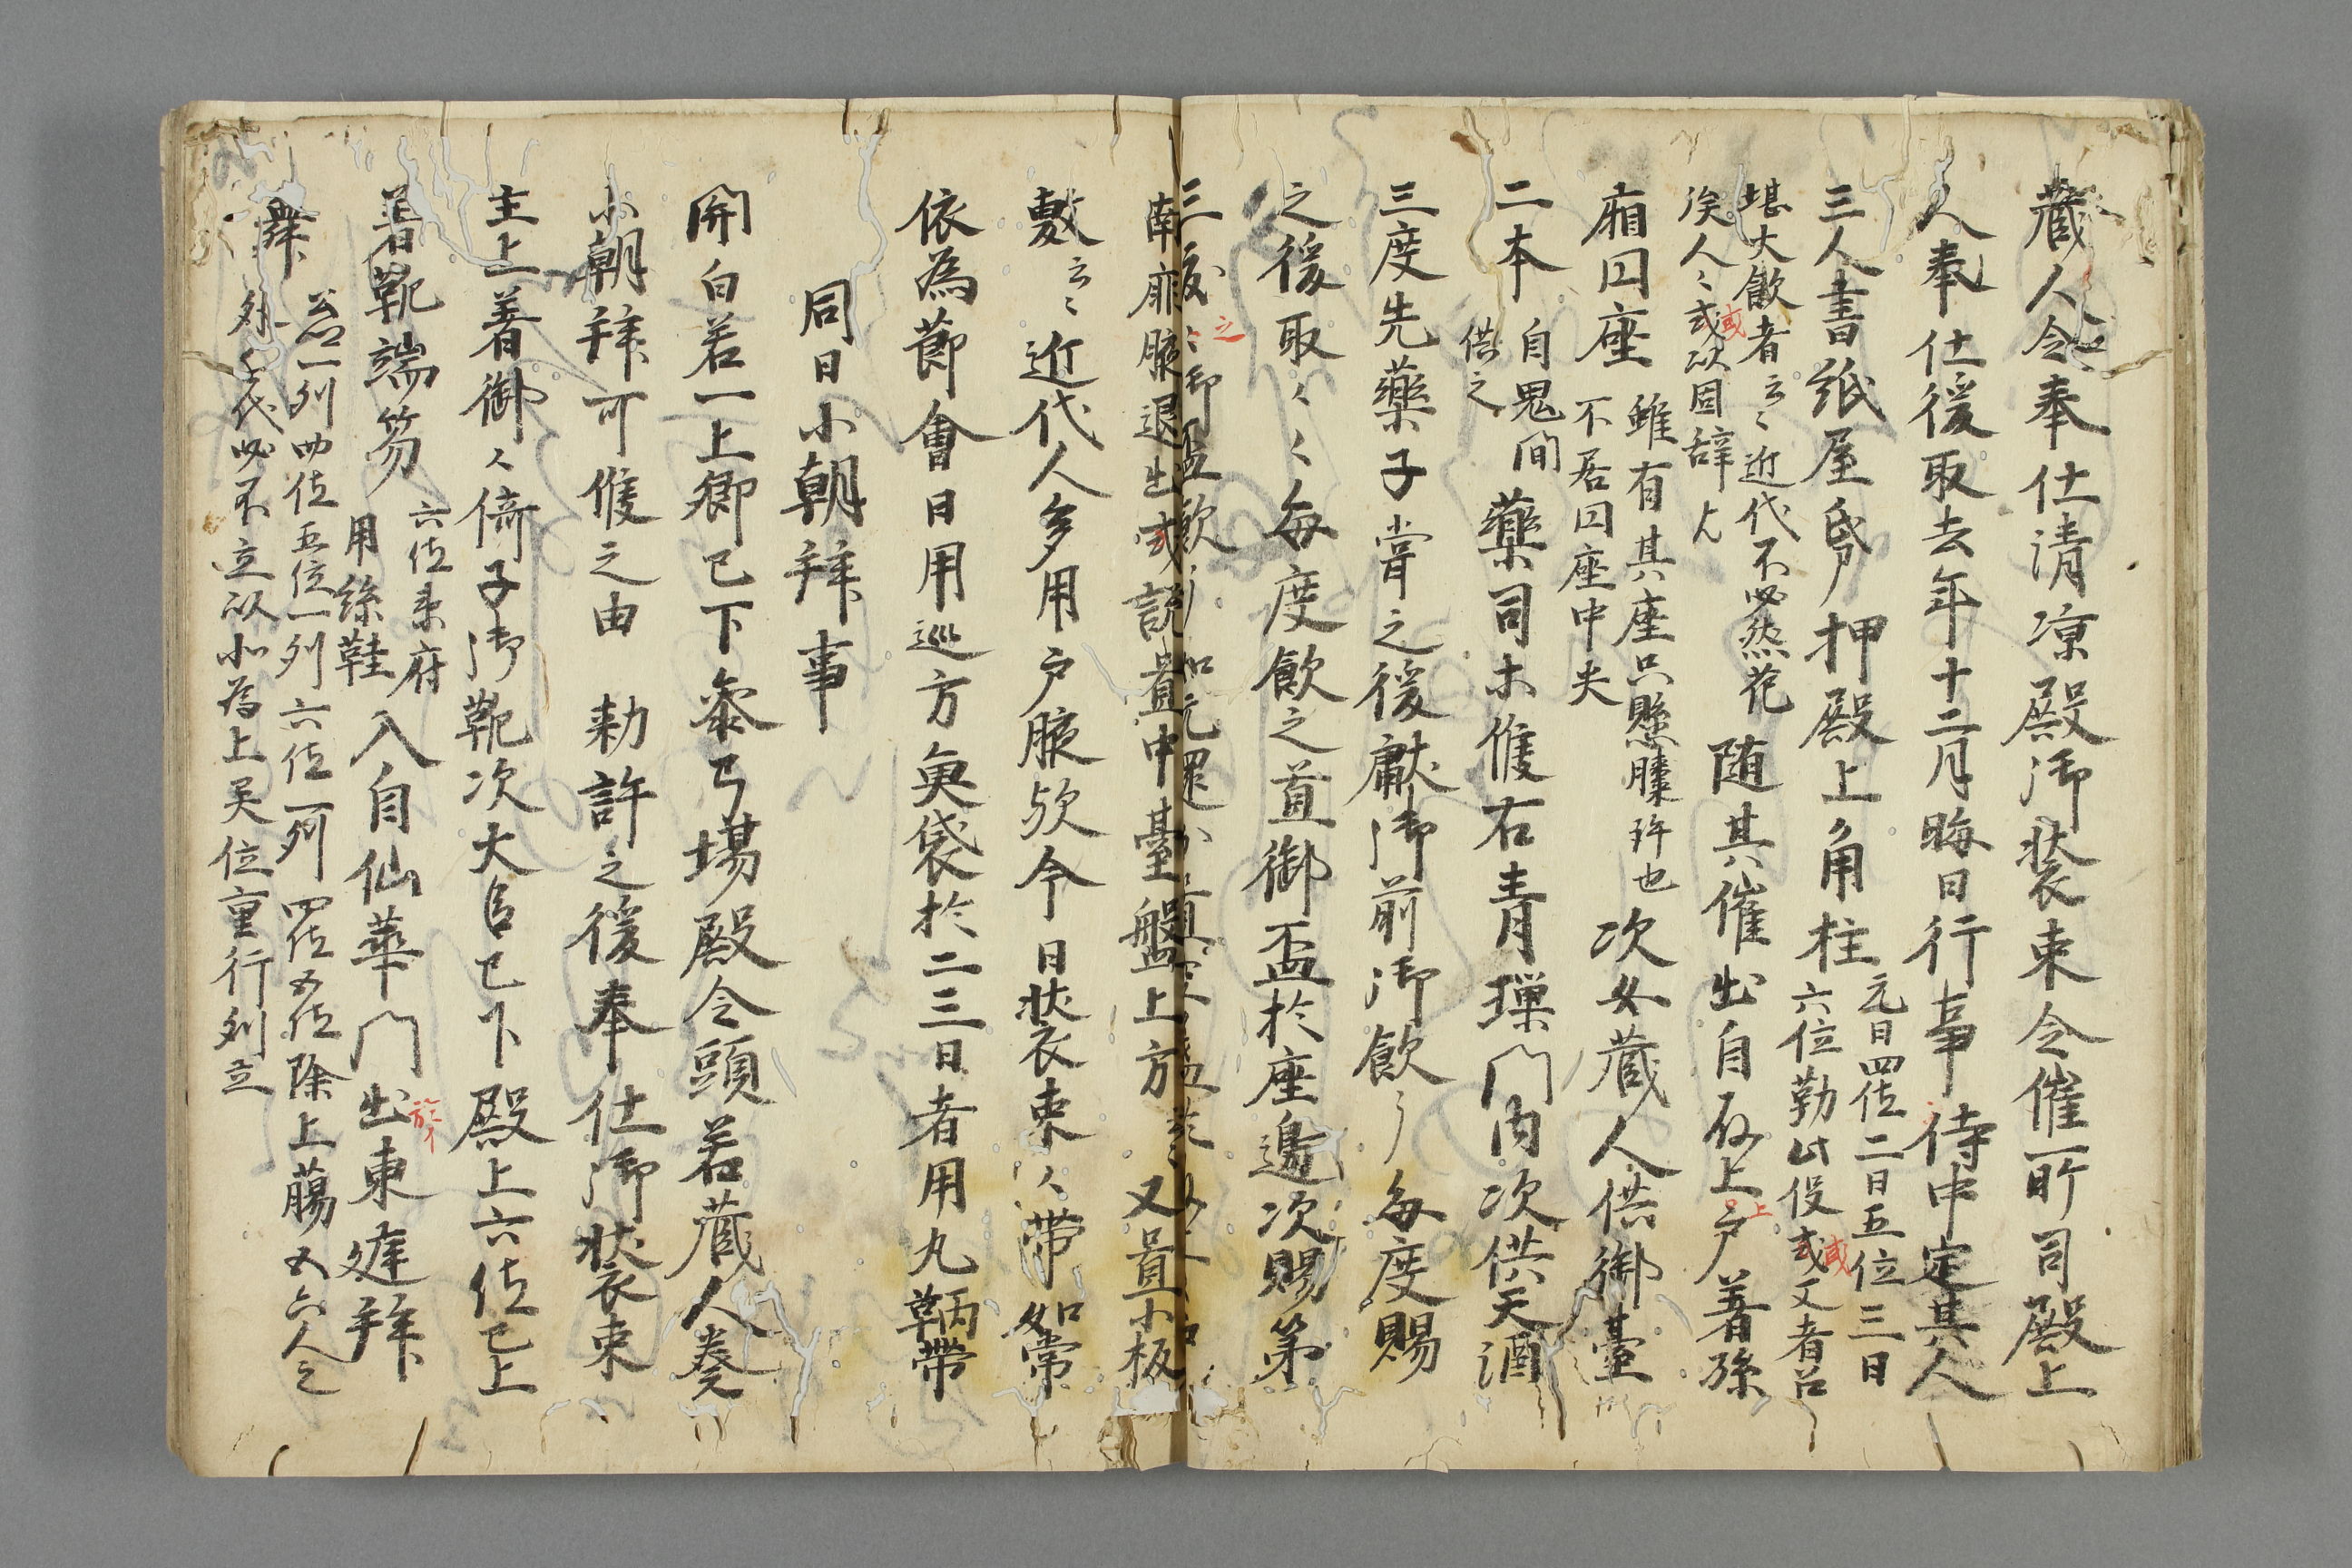 蔵人令奉仕清涼殿御装束令催所司殿上
人奉仕後取去年十二月晦日行事侍中定其人
三人書紙屋㡡押殿上角柱
元日四位二日五位三日
六位勤此役或又者召
堪大飲者云々近代不必然花
族人々或以固辞
随其催出自殿上戸着孫
廂円座
雖有其座只懸膝許也
不居円座中央
次女蔵人供御臺
二本
自鬼間
供之
藥司未催右青璅門内次供天酒
三度先藥子嘗之後獻御前御飲了毎度賜
之後取々々毎度飲之置御盃於座邊次賜第
三度之御盃飲了如元還
南廊腋退出或説置中臺盤上方又置小板
敷云々近代人多用戸腋欤今日装束々帯如常
依為節會日用巡方魚袋於二三日者用丸鞆帯
同日小朝拜事
関白若一上卿已下參弓場殿令頭若蔵人奏
小朝拜可候之由 勅許之後奉仕御装束
主上着御々倚子御靴次大臣已下殿上六位已上
着靴端笏
六位衛府
用絲鞋
入自仙華門出東庭拜
舞
公卿一列四位五位一列六位一列四位五位除上﨟五六人之
外近代必不立以北為上異位重行列立